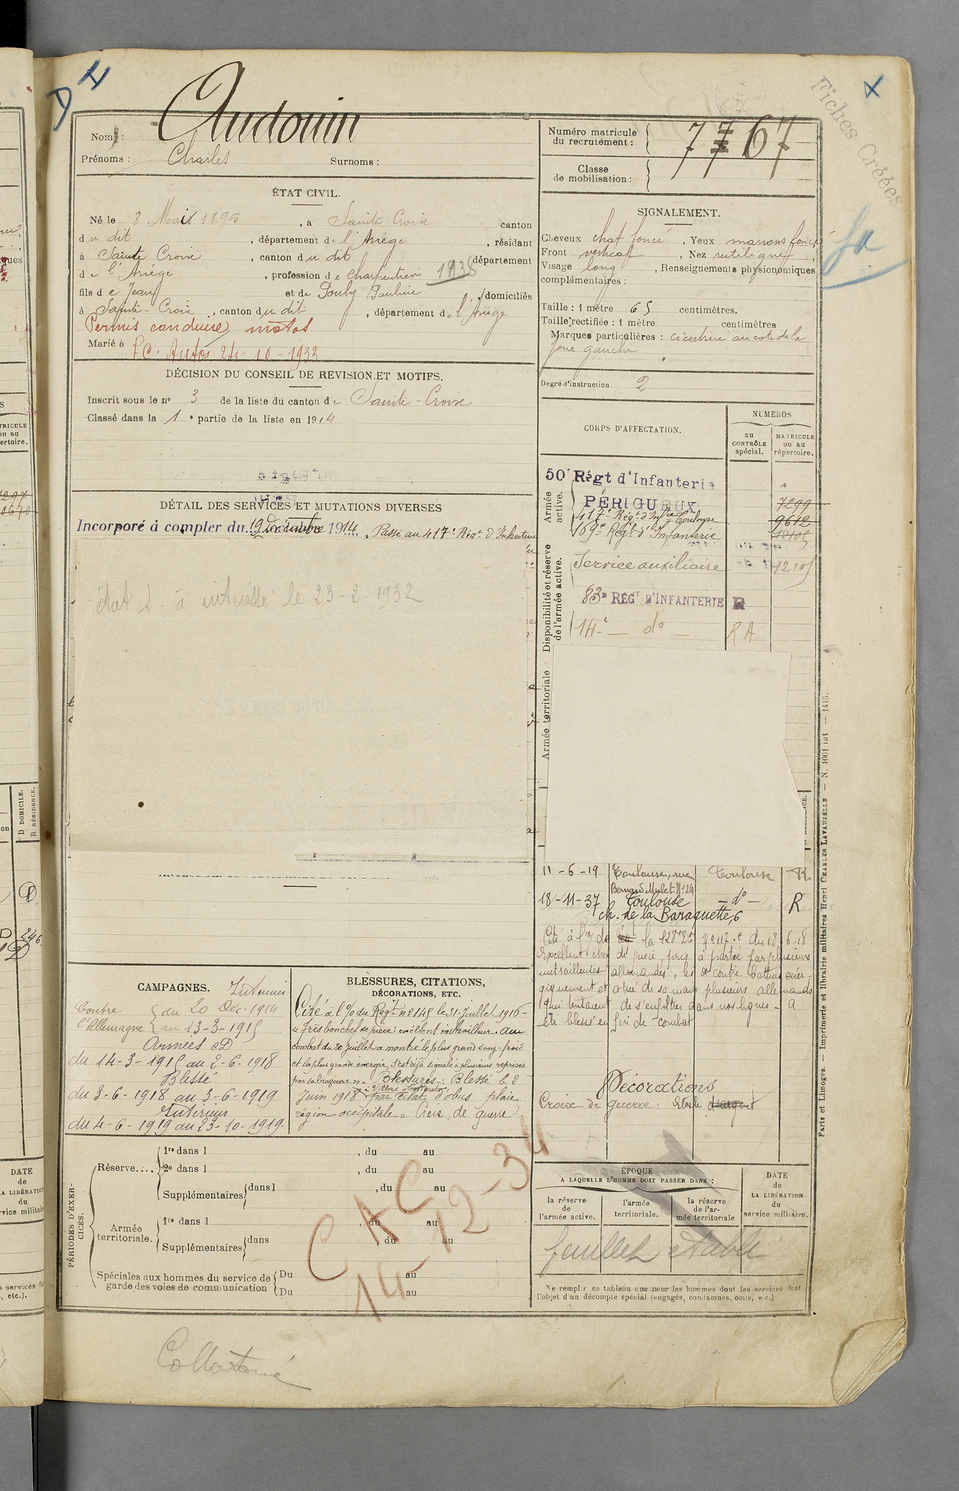 D
Fiches Créées
Nom : Audouin
Prénoms : Charles Surnoms :
Numéro matricule
du recrutement : 7767
Classe
de mobilisation :
ÉTAT CIVIL.
Né le 8 Mars 1895, à Sainte Croix canton
du dit, département de l'Ariège, résidant
à Sainte Croix, canton du dit département
de l'Ariège, profession de Charpentier 1935
fils de Jean et de Pauline, domiciliés
à Sainte-Croix, canton du dit, département de l'Ariège
Permis conduire motos
Marié à P.C. Autos 24-10-1933
SIGNALEMENT.
Cheveux chat foncé, Yeux marrons foncé
Front vertical, Nez rectiligne
Visage long, Renseignements physionomiques
complémentaires :
Taille : 1 mètre 65 centimètres.
Taille rectifiée : 1 mètre centimètres
Marques particulières : cicatrice au coté de la
joue gauche
Degré d'instruction : 2
DÉCISION DU CONSEIL DE REVISION ET MOTIFS.
Inscrit sous le no 3 de la liste du canton de Sainte-Croix
Classé dans la 1e partie de la liste en 1914
DÉTAIL DES SERVICES ET MUTATIONS DIVERSES
Incorporé à compter du 19 Décembre 1914. Passé au 417e Rég. d'Infanterie
état S. à intéressé le 23-2-1932
CORPS D'AFFECTATION.
NUMÉROS
au
CONTRÔLE
spécial.
MATRICULE
ou au
répertoire.
Armée
active.
50e Régt d'Infanterie
PÉRIGUEUX
7299
417e Rég. d'Inf. Toulouse
9612
169e Régt d'Infanterie
Disponibilité et réserve
de l'armée active.
Service auxiliaire
83e RÉGT D'INFANTERIE R
14e — do — RA
Armée territoriale
11-6-19 Toulouse, rue Toulouse R.
Bernard Mulet No 24
18-11-37 Toulouse — do — R
ch. de la Baraquette, 6
Cité à l'o/ de la
Excellent chef de pièce, pris à partie par plusieurs
mitrailleuses allemandes, les
de sa main plusieurs allemands
qui tentaient de s'infiltrer dans nos lignes. A
été blessé en fin de combat
Décorations
Croix de guerre : étoile d'argent
CAMPAGNES.
Contre
l'Allemagne
Intérieur
du 20 Déc. 1914
au 13-3-1915
Armées
du 14-3-1915 au 2-6-1918
Blessé
du 3-6-1918 au 3-6-1919
Intérieur
du 4-6-1919 au 23-10-1919
BLESSURES, CITATIONS,
DÉCORATIONS, ETC.
Cité à l'o/ du Régt no 145 le 31 Juillet 1916
"Très bon chef de pièce : excellent mitrailleur. Au
combat du 30 Juillet a montré le plus grand sang-froid
et la plus grande énergie, s'est déjà signalé à plusieurs reprises
par sa bravoure". Blessures : Blessé le 2
Juin 1918 par éclat d'obus plaie
région occipitale. Croix de guerre.
PÉRIODES D'EXERCICES.
Réserve....
1re dans l , du au
2e dans l , du au
Supplémentaires dans l , du au
Armée
territoriale.
1re dans l , du au
Supplémentaires dans , du au
Spéciales aux hommes du service de
garde des voies de communication
Du au
Du au
CAC
14-12-34
ÉPOQUE
A LAQUELLE L'HOMME DOIT PASSER DANS :
la réserve
de l'armée active.
l'armée
territoriale.
la réserve
de l'armée territoriale
DATE
de
LA LIBÉRATION
du
service militaire.
feuillet établi
Ne remplir ce tableau que pour les hommes dont les services font
l'objet d'un décompte spécial (engagés, condamnés, omis, etc.)
Paris et Limoges. — Imprimerie et librairie militaires Henri CHARLES-LAVAUZELLE
Collationné